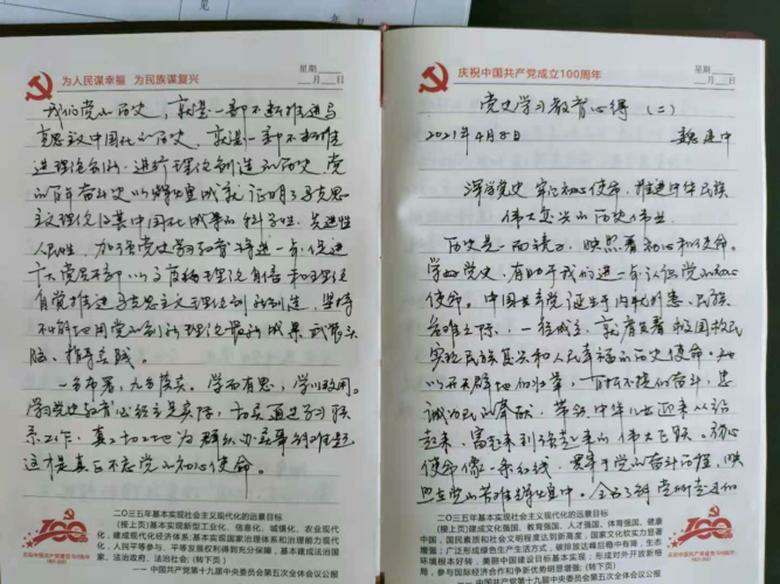 见
为人民谋幸福 为民族谋复兴
星期
月 日
我们党的历史，就是一部不断推进马
克思主义中国化的历史，就是一部不断推
进理论创新、进行理论创造的历史。党
的百年奋斗史以辉煌成就证明了马克思
主义理论及其中国化成果的科学性、先进性
人民性。加强党史学习教育将进一步促进
广大党员干部
自觉推进马克思主义理论创新创造，坚持
不懈地用党的创新理论最新成果武装头
脑、指导实践。
一分布署，九分落实。学而有思，学以致用。
学习党史教育必
系工作，真 为群众办
这才是真正不忘党的初心使命。
二〇三五年基本实现社会主义现代化的远景目标
(接上页)基本实现新型工业化、信息化、城镇化、农业现代
化，建成现代化经济体系；基本实现国家治理体系和治理能力现代
化，人民平等参与、平等发展权利得到充分保障，基本建成法治国
家、法治政府、法治社会；(转下页)
——中国共产党第十九届中央委员会第五次全体会议公报
庆祝中国共产党成立100周年
星期
月 日
党史学习教育心得（二）
2021年4月8日 魏建中
深学党史 牢记初心使命，推进中华民族
伟大复兴的历史伟业
历史是一面镜子，映照着初心和使命。
学好党史，有助于我们进一步认识党的初心
使命。中国共产党诞生于内忧外患、民族
危难之际，一经成立，就肩负着救国救民
实现民族复兴和人民幸福的历史使命。她
以开天辟地的 ，百折不挠的奋斗，忠
诚为民的奉献，带领中华儿女迎来从站
起来、富起来到强起来的伟大飞跃。初心
使命像一条红线，贯穿于党的奋斗历程，映
党的苦难辉煌中。全面了解党
二〇三五年基本实现社会主义现代化的远景目标
(接上页)建成文化强国、教育强国、人才强国、体育强国、健康
中国，国民素质和社会文明程度达到新高度，国家文化软实力显著
增强；广泛形成绿色生产生活方式，碳排放达峰后稳中有降，生态
环境根本好转，美丽中国建设目标基本实现；形成对外开放新格
局，参与国际经济合作和竞争新优势明显增强；(转下页)
——中国共产党第十九届中央委员会第五次全体会议公报